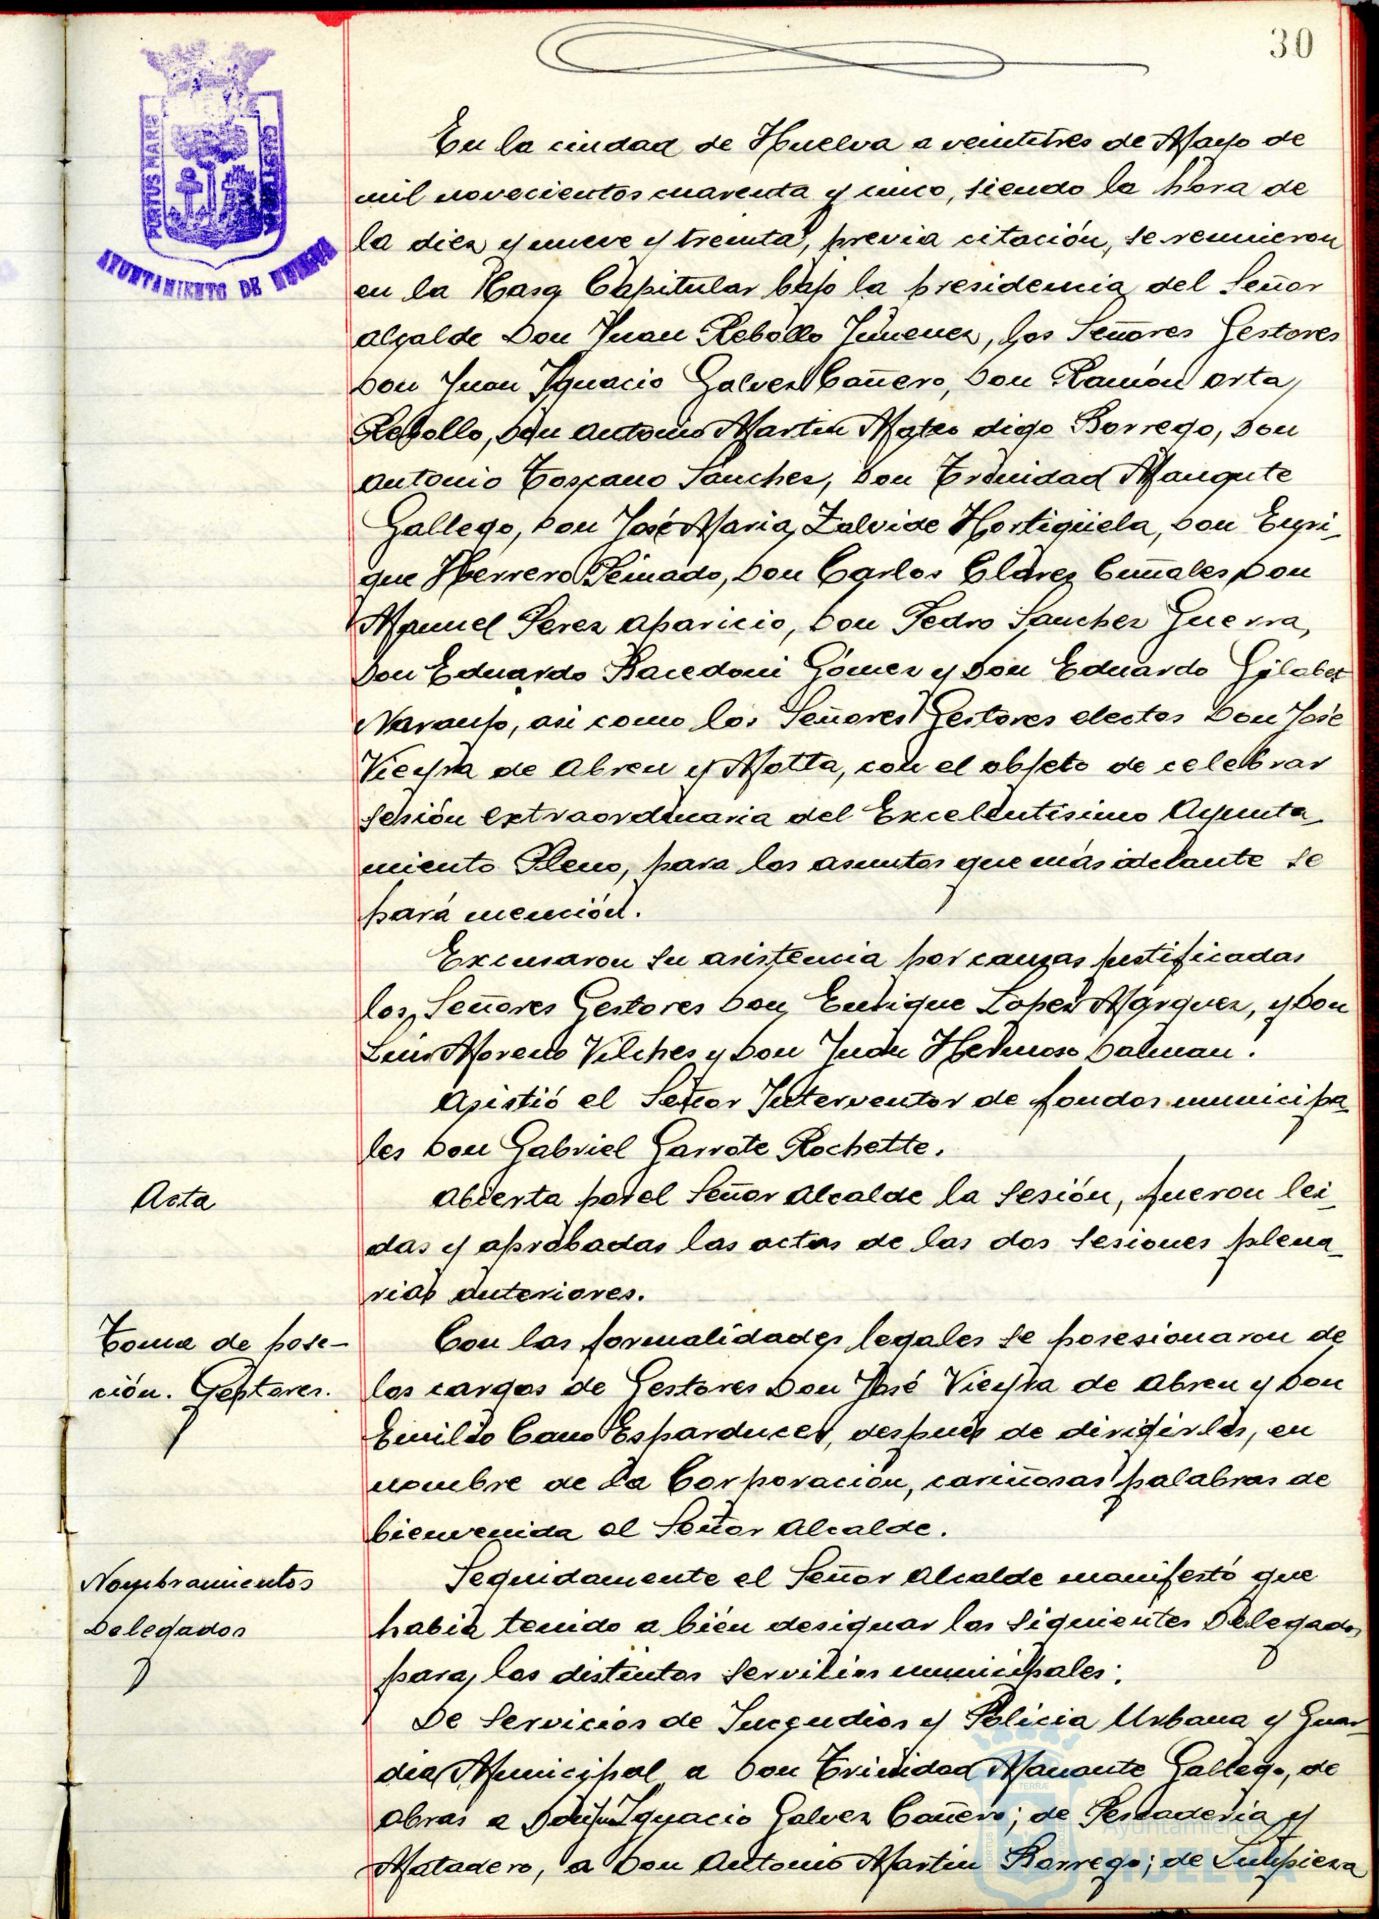 30
PORTUS MARIS
AYUNTAMIENTO DE HUELVA
En la ciudad de Huelva a veintitres de Mayo de
mil novecientos cuarenta y cinco, siendo la hora de
la diez y nueve y treinta, previa citación, se reunieron
en la Casa Capitular bajo la presidencia del Señor
Alcalde Don Juan Rebollo Jimenez, los Señores Gestores
Don Juan Ignacio Galvez Cañero, Don Ramón Orta
Rebollo, Don Antonio Martin Mateo digo Borrego, Don
Antonio Toscano Sánchez, Don Trinidad Mangute
Gallego, Don José Maria Zalvide Hortigüela, Don Enri-
que Herrero Peinado, Don Carlos Clárez Cuñales, Don
Manuel Perez Aparicio, Don Pedro Sanchez Guerra,
Don Eduardo Bacedoni Gómez y Don Eduardo Gilabet
Naranjo, asi como los Señores Gestores electos Don José
Vieyra de Abreu y Motta, con el objeto de celebrar
sesión extraordinaria del Excelentisimo Ayunta-
miento Pleno, para los asuntos que más adelante se
hará mención.
Excusaron su asistencia por causas justificadas
los Señores Gestores Don Enrique Lopez Márquez, y Don
Luis Moreno Vilches y Don Juan Hermoso Dalman.
Asistió el Señor Interventor de fondos municipa-
les Don Gabriel Garrote Rochette.
Acta
Abierta por el Señor Alcalde la sesión, fueron lei-
das y aprobadas las actas de las dos sesiones plena-
rias anteriores.
Toma de pose-
ción. Gestores.
Con las formalidades legales se posesionaron de
los cargos de Gestores Don José Vieyra de Abreu y Don
Emilio Cano Esparducer, después de dirigirles, en
nombre de la Corporación, cariñosas palabras de
bienvenida el Señor Alcalde.
Nombramientos
Delegados
Seguidamente el Señor Alcalde manifestó que
habia tenido a bién designar los siguientes Delegados
para los distintos servicios municipales:
De Servicios de Incendios y Policia Urbana y Guar-
dia Municipal a Don Trinidad Manante Gallego, de
Obras a Don Juan Ignacio Galvez Cañero; de Pescaderia y
Matadero, a Don Antonio Martin Borrego; de Limpieza
Ayuntamiento
HUELVA